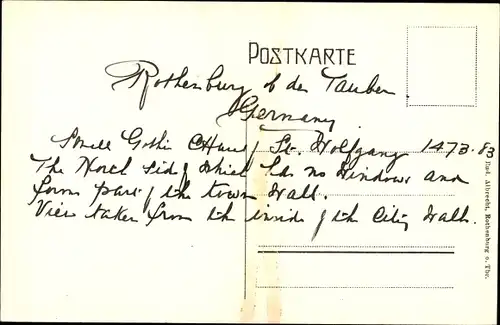 POSTKARTE
Rothenburg ob der Tauber
Germany
Small Gothic Church of St. Wolfgang 1473-83
The North side of which has no windows and
forms part of the town wall.
View taken from the inside of the City Walls.
Rud. Albrecht, Rothenburg o. Tbr.